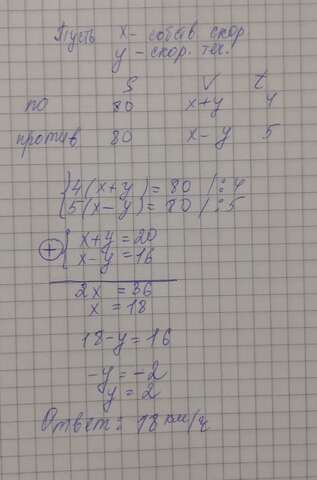 Пусть x - собств. скор
y - скор. теч.
S V t
по 80 x+y 4
против 80 x-y 5
{4(x+y)=80 /:4
{5(x-y)=80 /:5
x+y=20
+ { x-y=16
2x = 36
x = 18
18-y=16
-y=-2
y=2
Ответ: 18 км/ч